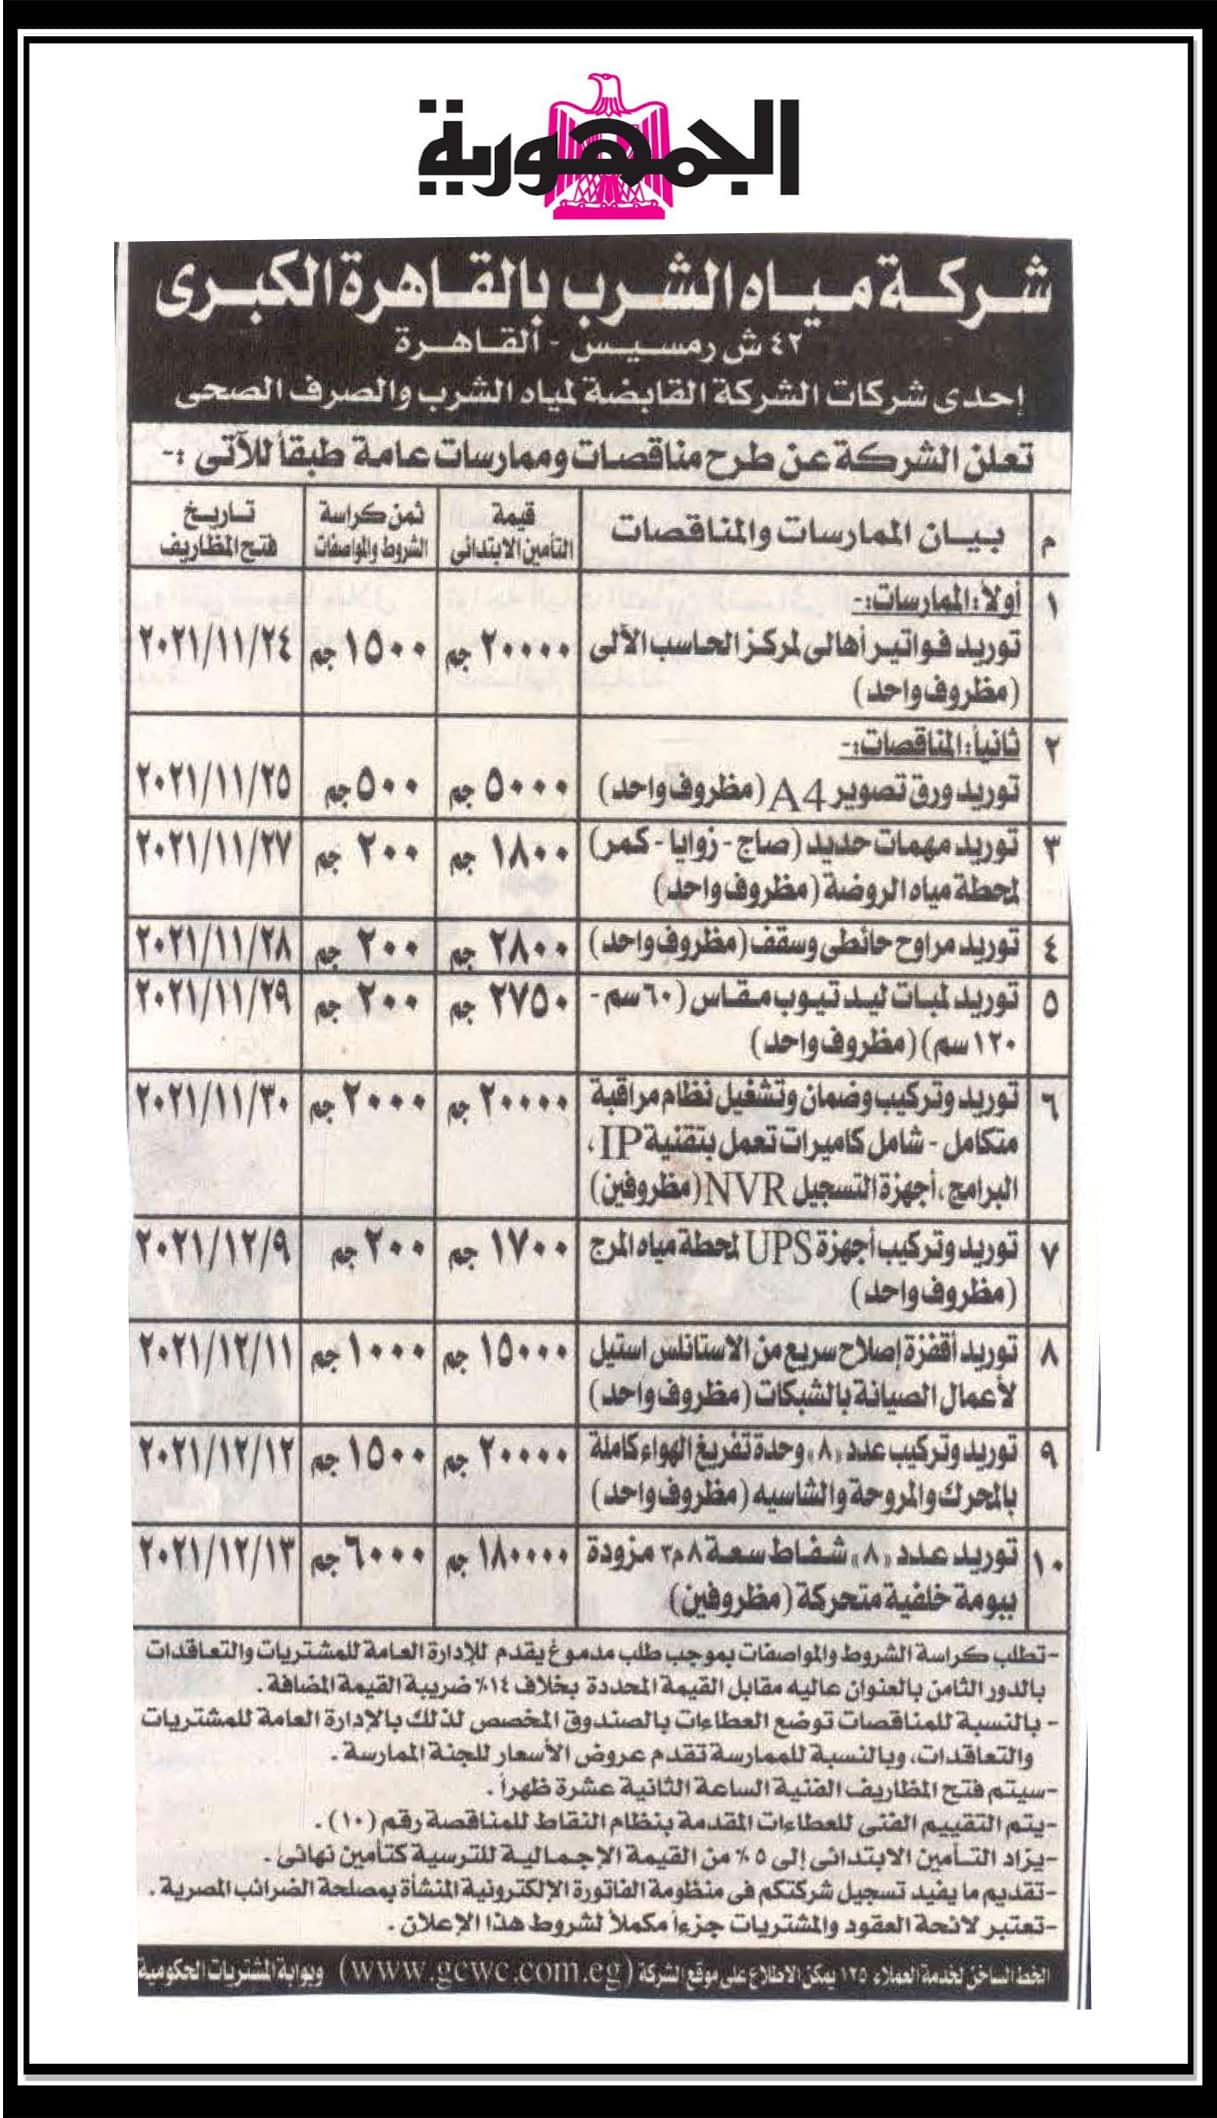 الجمهورية
شركة مياه الشرب بالقاهرة الكبرى
٤٢ ش رمسيس - القاهرة
إحدى شركات الشركة القابضة لمياه الشرب والصرف الصحى
تعلن الشركة عن طرح مناقصات وممارسات عامة طبقاً للآتى :-
م بيان الممارسات والمناقصات قيمة التأمين الابتدائى ثمن كراسة الشروط والمواصفات تاريخ فتح المظاريف
١ أولاً: الممارسات:-
توريد فواتير أهالى لمركز الحاسب الآلى ٢٠٠٠٠ جم ١٥٠٠ جم ٢٠٢١/١١/٢٤
(مظروف واحد)
٢ ثانياً: المناقصات:-
توريد ورق تصوير A4 (مظروف واحد) ٥٠٠٠ جم ٥٠٠ جم ٢٠٢١/١١/٢٥
٣ توريد مهمات حديد (صاج - زوايا - كمر) ١٨٠٠ جم ٢٠٠ جم ٢٠٢١/١١/٢٧
لمحطة مياه الروضة (مظروف واحد)
٤ توريد مراوح حائطى وسقف (مظروف واحد) ٢٨٠٠ جم ٢٠٠ جم ٢٠٢١/١١/٢٨
٥ توريد لمبات ليد تيوب مقاس (٦٠ سم - ٢٧٥٠ جم ٢٠٠ جم ٢٠٢١/١١/٢٩
١٢٠ سم) (مظروف واحد)
٦ توريد وتركيب وضمان وتشغيل نظام مراقبة ٢٠٠٠٠ جم ٢٠٠٠ جم ٢٠٢١/١١/٣٠
متكامل - شامل كاميرات تعمل بتقنية IP،
البرامج، أجهزة التسجيل NVR (مظروفين)
٧ توريد وتركيب أجهزة UPS لمحطة مياه المرج ١٧٠٠ جم ٢٠٠ جم ٢٠٢١/١٢/٩
(مظروف واحد)
٨ توريد أقفزة إصلاح سريع من الاستانلس استيل ١٥٠٠٠ جم ١٠٠٠ جم ٢٠٢١/١٢/١١
لأعمال الصيانة بالشبكات (مظروف واحد)
٩ توريد وتركيب عدد «٨» وحدة تفريغ الهواء كاملة ٢٠٠٠٠ جم ١٥٠٠ جم ٢٠٢١/١٢/١٢
بالمحرك والمروحة والشاسيه (مظروف واحد)
١٠ توريد عدد «٨» شفاط سعة ٨ م٣ مزودة ١٨٠٠٠٠ جم ٦٠٠٠ جم ٢٠٢١/١٢/١٣
ببومة خلفية متحركة (مظروفين)
-تطلب كراسة الشروط والمواصفات بموجب طلب مدموغ يقدم للإدارة العامة للمشتريات والتعاقدات
بالدور الثامن بالعنوان عاليه مقابل القيمة المحددة بخلاف ١٤٪ ضريبة القيمة المضافة .
- بالنسبة للمناقصات توضع العطاءات بالصندوق المخصص لذلك بالإدارة العامة للمشتريات
والتعاقدات، وبالنسبة للممارسة تقدم عروض الأسعار للجنة الممارسة .
-سيتم فتح المظاريف الفنية الساعة الثانية عشرة ظهراً .
-يتم التقييم الفنى للعطاءات المقدمة بنظام النقاط للمناقصة رقم (١٠) .
-يزاد التأمين الابتدائى إلى ٥٪ من القيمة الإجمالية للترسية كتأمين نهائى .
-تقديم ما يفيد تسجيل شركتكم فى منظومة الفاتورة الإلكترونية المنشأة بمصلحة الضرائب المصرية .
-تعتبر لائحة العقود والمشتريات جزءاً مكملاً لشروط هذا الإعلان .
الخط الساخن لخدمة العملاء ١٢٥ يمكن الاطلاع على موقع الشركة (www.gcwc.com.eg) وبوابة المشتريات الحكومية